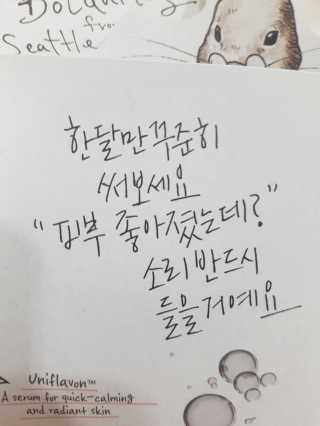 from
Seattle
한달만 꾸준히
써보세요
"피부 좋아졌는데?"
소리 반드시
들을거예요
Uniflavon™
A serum for quick-calming
and radiant skin